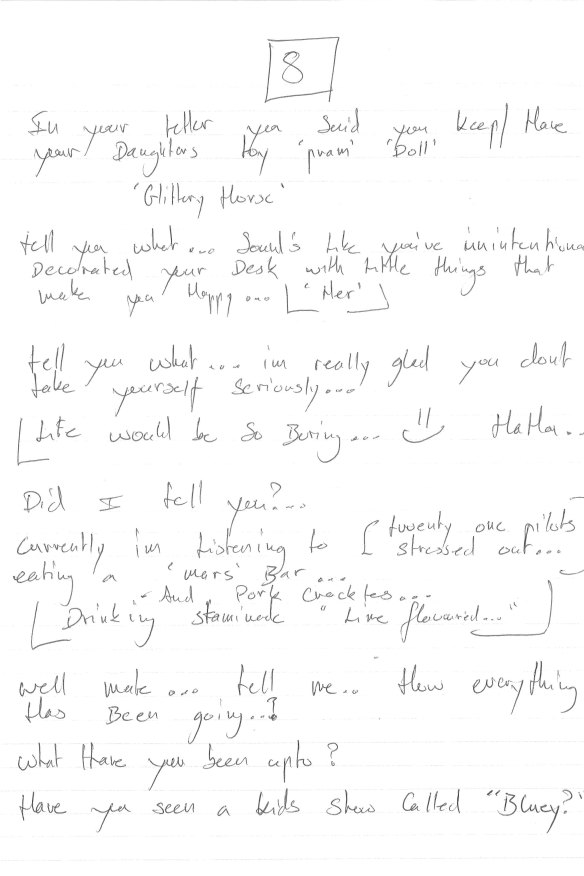 8
In your letter you said you keep/Have
your Daughters toy 'pram' 'Doll'
'Glittery Horse'
tell you what... Sound's like you've unintentiona
Decorated your Desk with little things that
make you Happy... 'Her'
tell you what... im really glad you dont
take yourself seriously...
Life would be so Boring... HaHa..
Did I tell you?...
Currently im Listening to [twenty one pilots
stressed out...
eating a 'mars' Bar...
- And Pork Crackles...
Drinking staminade "Lime flavoured..."
well mate... tell me.. How everything
Has Been going...?
what Have you been upto?
Have you seen a kids show Called "Bluey?"